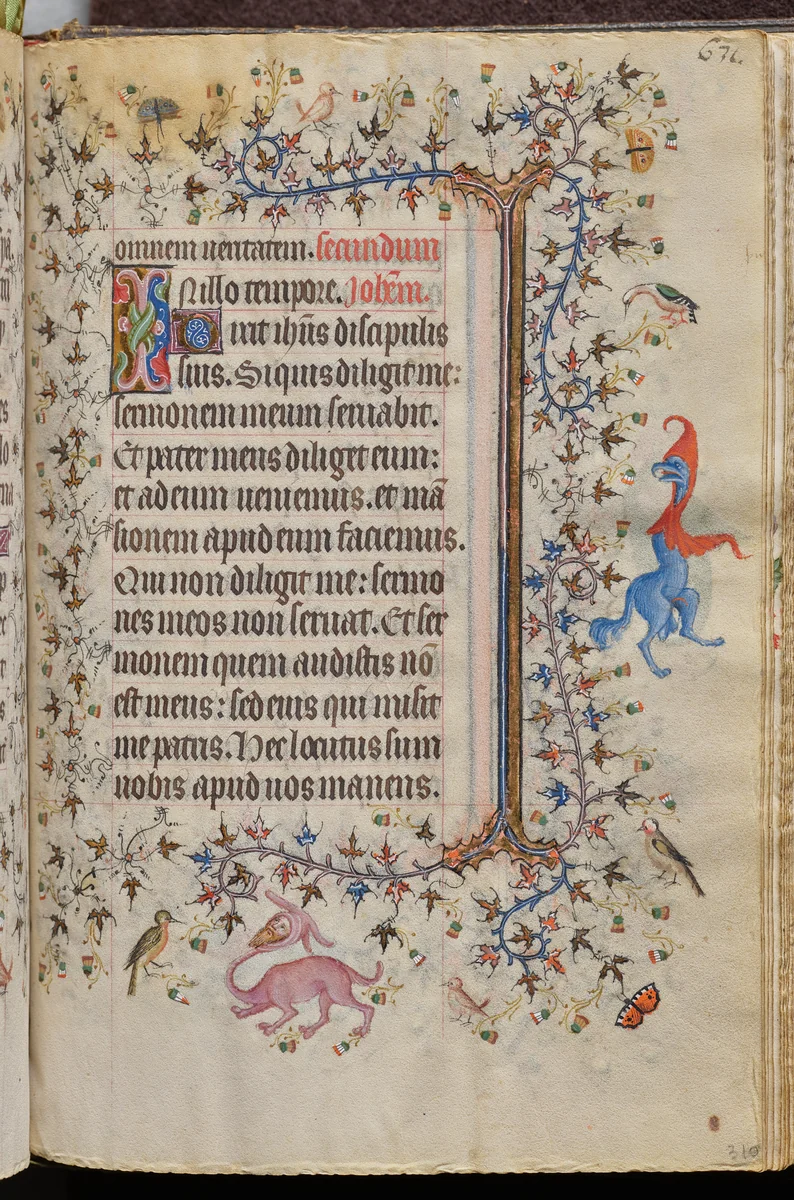 671.
omnem ueritatem. secundum
In illo tempore. Johēm.
Dixit ihūs discipulis
suis. Si quis diligit me:
sermonem meum seruabit.
Et pater meus diliget eum:
et ad eum ueniemus. et mā
sionem apud eum faciemus.
Qui non diligit me: sermo
nes meos non seruat. Et ser
monem quem audistis nō
est meus: sed eius qui misit
me patris. Hec locutus sum
uobis apud uos manens.
310